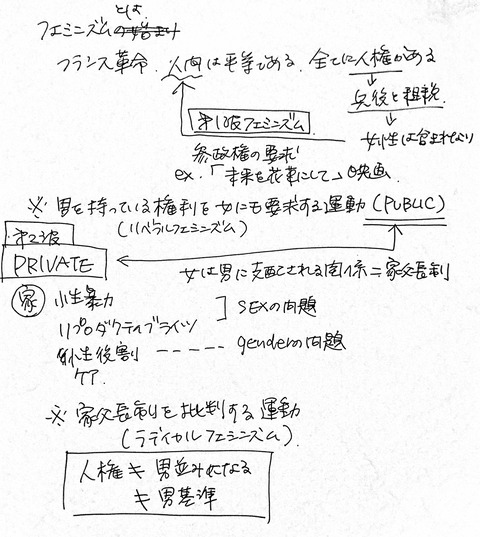 フェミニズムとは
フランス革命. 人間は平等である. 全てに人権がある
兵役と租税
第1波フェミニズム
女性は含まれない
参政権の要求
ex.「未来を花束にして」映画
※ 男を持っている権利を女にも要求する運動 (PUBLIC)
(リベラルフェミニズム)
第2波
PRIVATE
女は男に支配される関係=家父長制
家 性暴力
リプロダクティブライツ
SEXの問題
性役割 ----- genderの問題
ケア
※ 家父長制を批判する運動
(ラディカルフェミニズム)
人権 ≠ 男並みになる
≠ 男基準